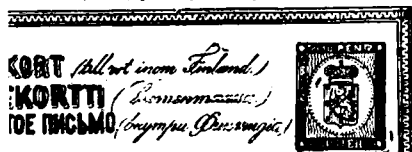 KORT (till ort inom Finland.)
KORTTI (
ТОЕ ПИСЬМО (внутри Финляндіи)
PENG